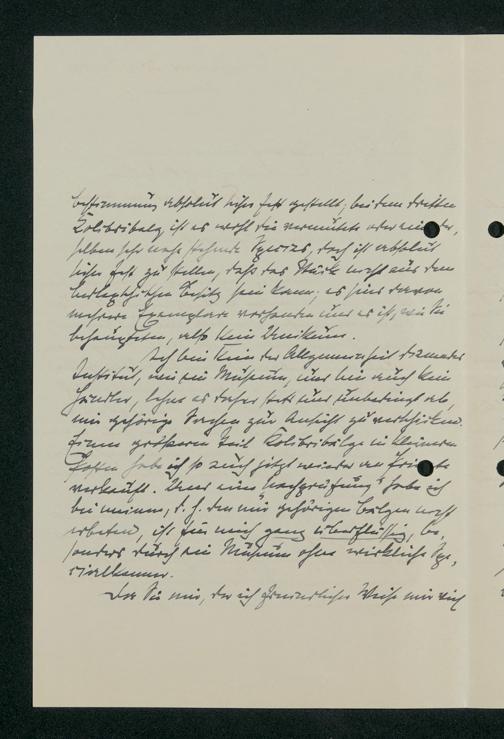 bestimmung absolut sicher fest gestellt; bei dem dritten
Kolibribalg ist es wohl die vermutete oder eine der,
selben sehr nahe stehende Spezies, doch ist absolut
sicher fest zu stellen, daß das Stück nicht aus dem
Besitz sein kann; es sind davon
mehrere Exemplare vorhanden und es ist, wie Sie
behaupteten, also kein Unikum.
Ich bin kein der Allgemeinheit dienendes
Institut, wie ein Museum, und bin auch kein
Händler, lehne es daher stets und unbedingt ab,
mir gehörige Sachen zur Ansicht zu verschicken.
Einen größeren Teil Kolibribälge in kleineren
Posten habe ich so auch jetzt wieder an Private
verkauft. Um eine "Nachprüfung" habe ich
bei meinen, d. h. den mir gehörigen Bälgen nicht
erbeten, ist für mich ganz überflüssig, be,
sonders durch ein Museum ohne wirkliche Spe,
zialkenner.
Da Sie mir, der ich Weise mir auch